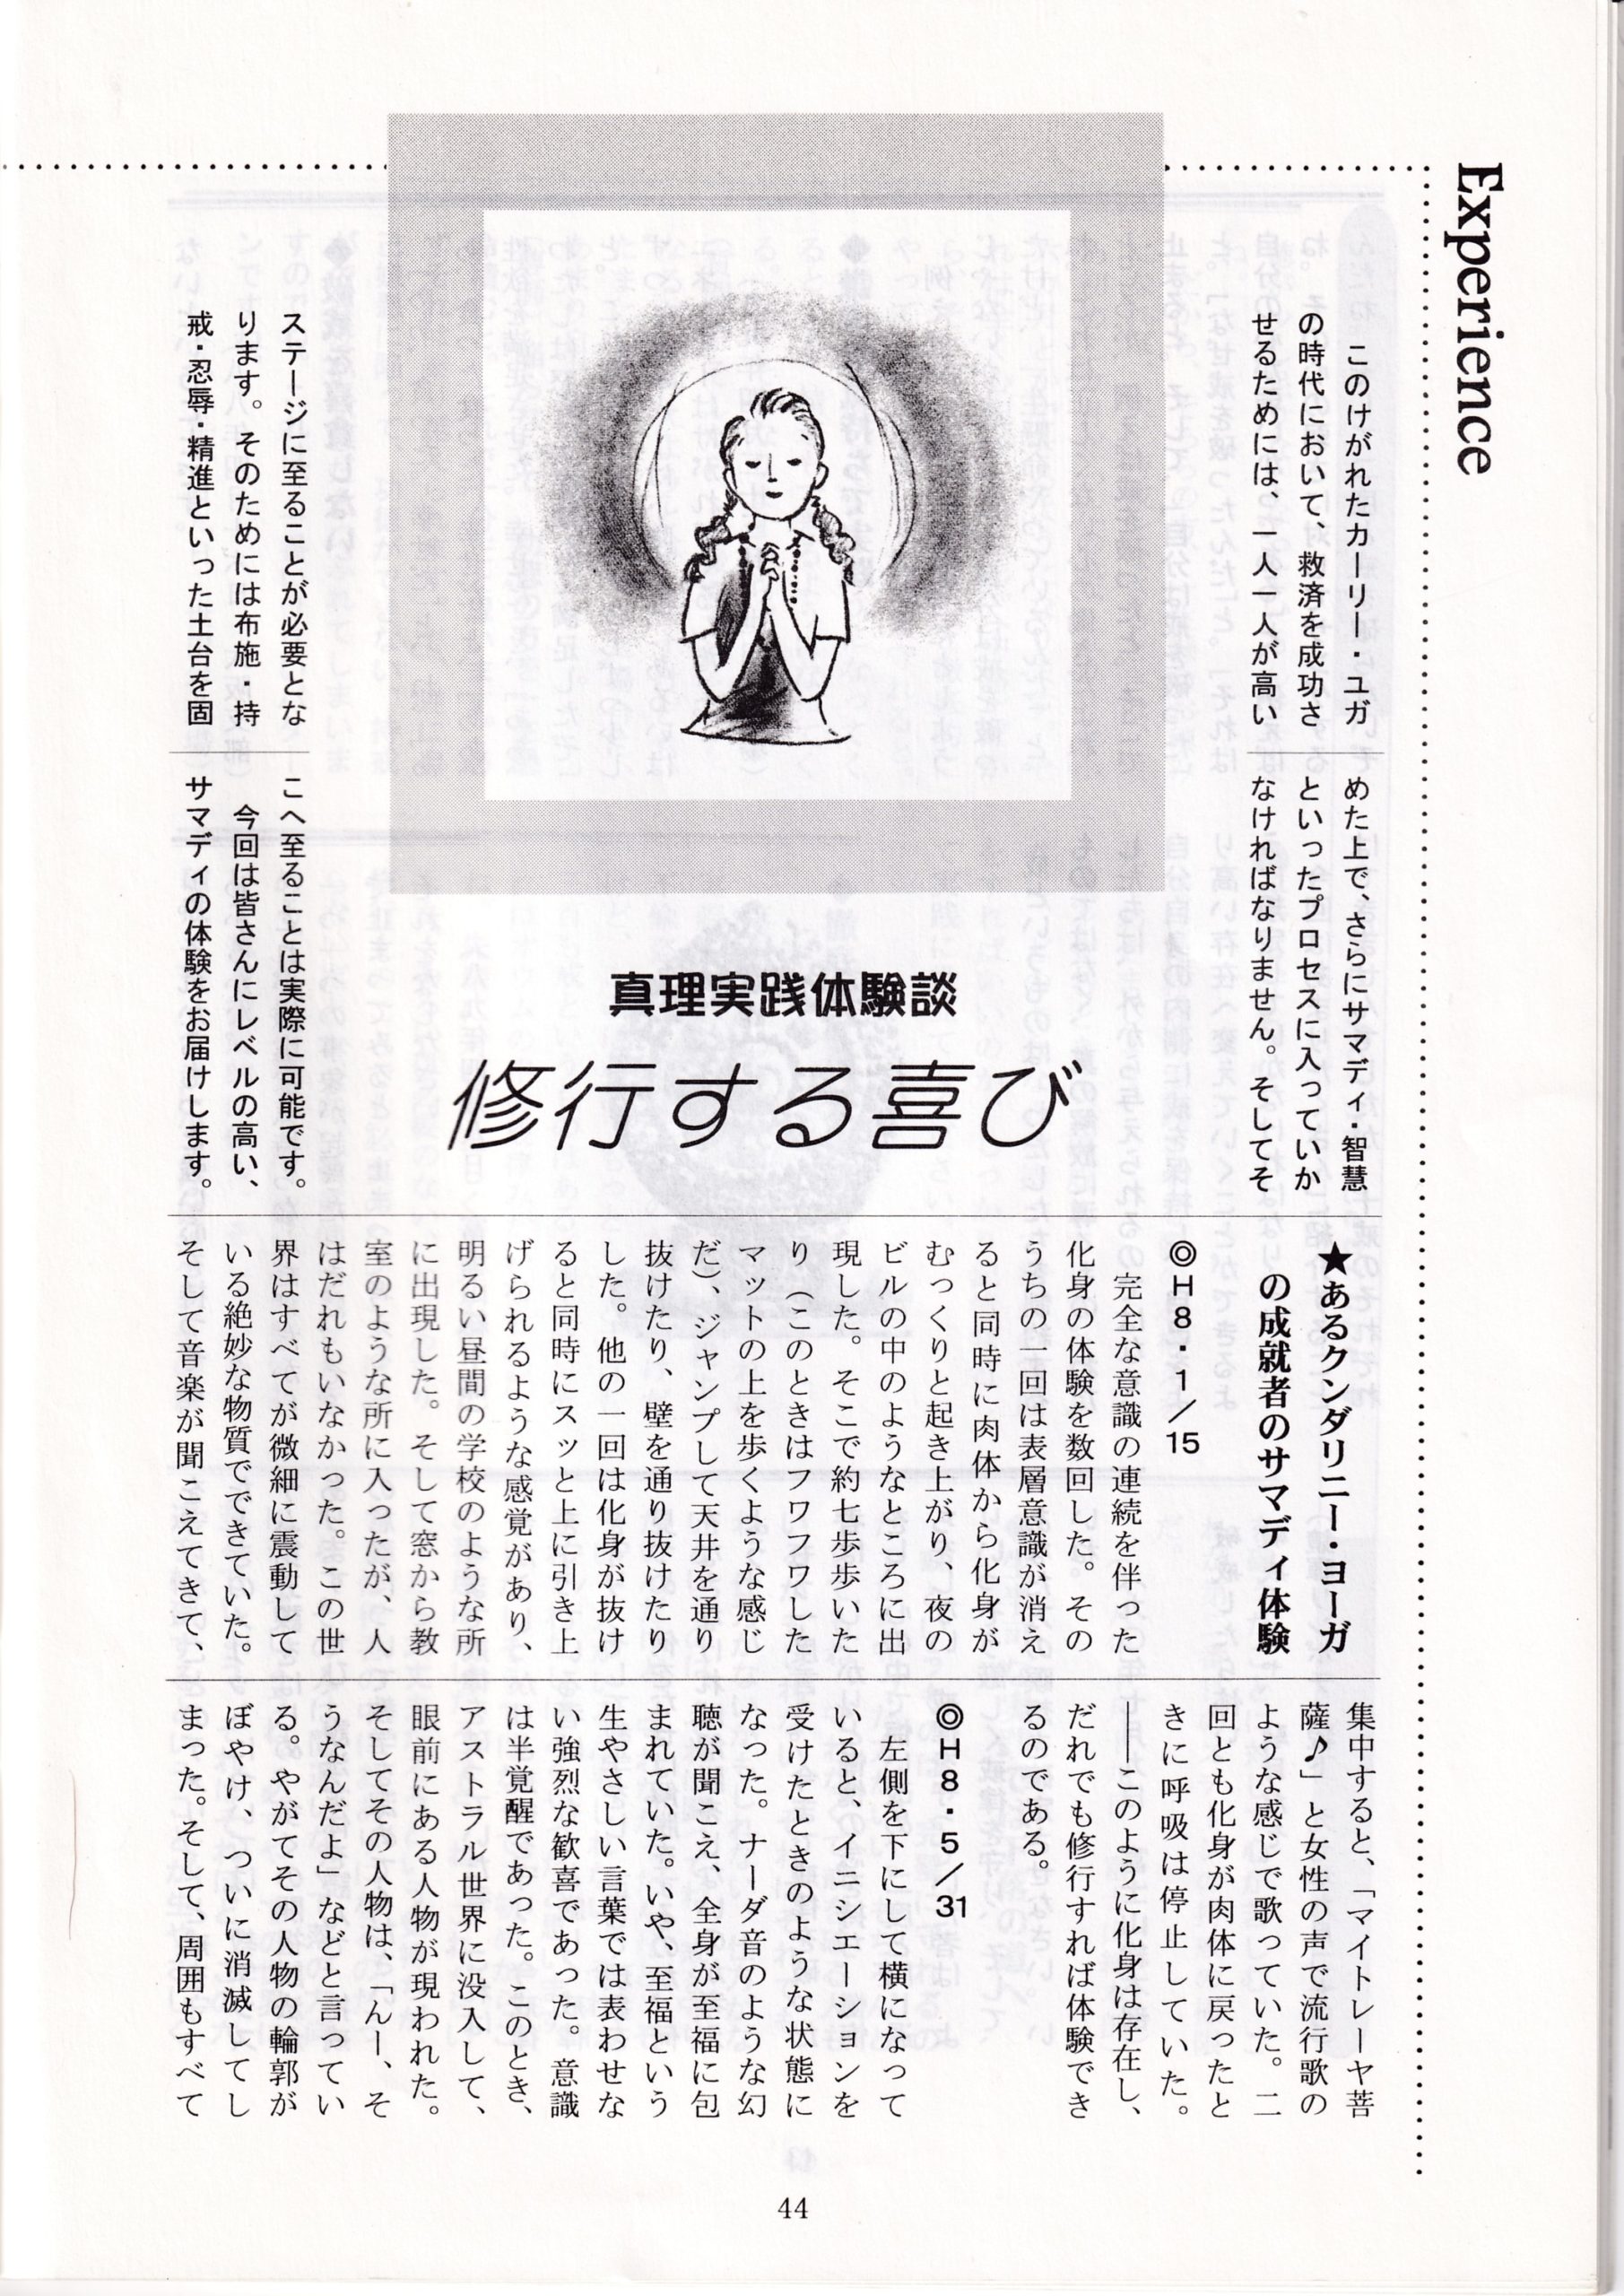 Experience
このけがれたカーリー・ユガ
の時代において、救済を成功さ
せるためには、一人一人が高い
ステージに至ることが必要とな
ります。そのためには布施・持
戒・忍辱・精進といった土台を固
めた上で、さらにサマディ・智慧
といったプロセスに入っていか
なければなりません。そしてそ
こへ至ることは実際に可能です。
今回は皆さんにレベルの高い、
サマディの体験をお届けします。
真理実践体験談
修行する喜び
★あるクンダリニー・ヨーガ
の成就者のサマディ体験
◎H8・1/15
完全な意識の連続を伴った
化身の体験を数回した。その
うちの一回は表層意識が消え
ると同時に肉体から化身が
むっくりと起き上がり、夜の
ビルの中のようなところに出
現した。そこで約七歩歩いた
り(このときはフワフワした
マットの上を歩くような感じ
だ)、ジャンプして天井を通り
抜けたり、壁を通り抜けたり
した。他の一回は化身が抜け
ると同時にスッと上に引き上
げられるような感覚があり、
明るい昼間の学校のような所
に出現した。そして窓から教
室のような所に入ったが、人
はだれもいなかった。この世
界はすべてが微細に震動して
いる絶妙な物質でできていた。
そして音楽が聞こえてきて、
集中すると、「マイトレーヤ菩
薩♪」と女性の声で流行歌の
ような感じで歌っていた。二
回とも化身が肉体に戻ったと
きに呼吸は停止していた。
――このように化身は存在し、
だれでも修行すれば体験でき
るのである。
◎H8・5/31
左側を下にして横になって
いると、イニシエーションを
受けたときのような状態に
なった。ナーダ音のような幻
聴が聞こえ、全身が至福に包
まれていた。いや、至福という
生やさしい言葉では表わせな
い強烈な歓喜であった。意識
は半覚醒であった。このとき、
アストラル世界に没入して、
眼前にある人物が現われた。
そしてその人物は、「んー、そ
うなんだよ」などと言ってい
る。やがてその人物の輪郭が
ぼやけ、ついに消滅してし
まった。そして、周囲もすべて
44